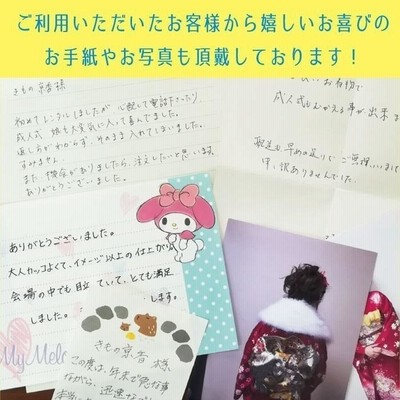 ご利用いただいたお客様から嬉しいお喜びの
お手紙やお写真も頂戴しております！
きもの 京香 様
初めてレンタルしましたが 心配して電話下さったり
成人式 娘も大変気に入って喜んでました。
返し方が わからず、そのまま入れてしまいました。
すみません。
また 機会がありましたら、注文したいと思います。
ありがとうございました。
お着物で
成人式をむかえる事が出来ま
申し訳ありませんでした。
ありがとうございました。
大人カッコよくて、イメージ以上の仕上がり
会場の中でも目立っていて、とても満足
しました。
します。
My Melo
きもの 京香 様
この度は、年末で急な事
ながら、迅速な